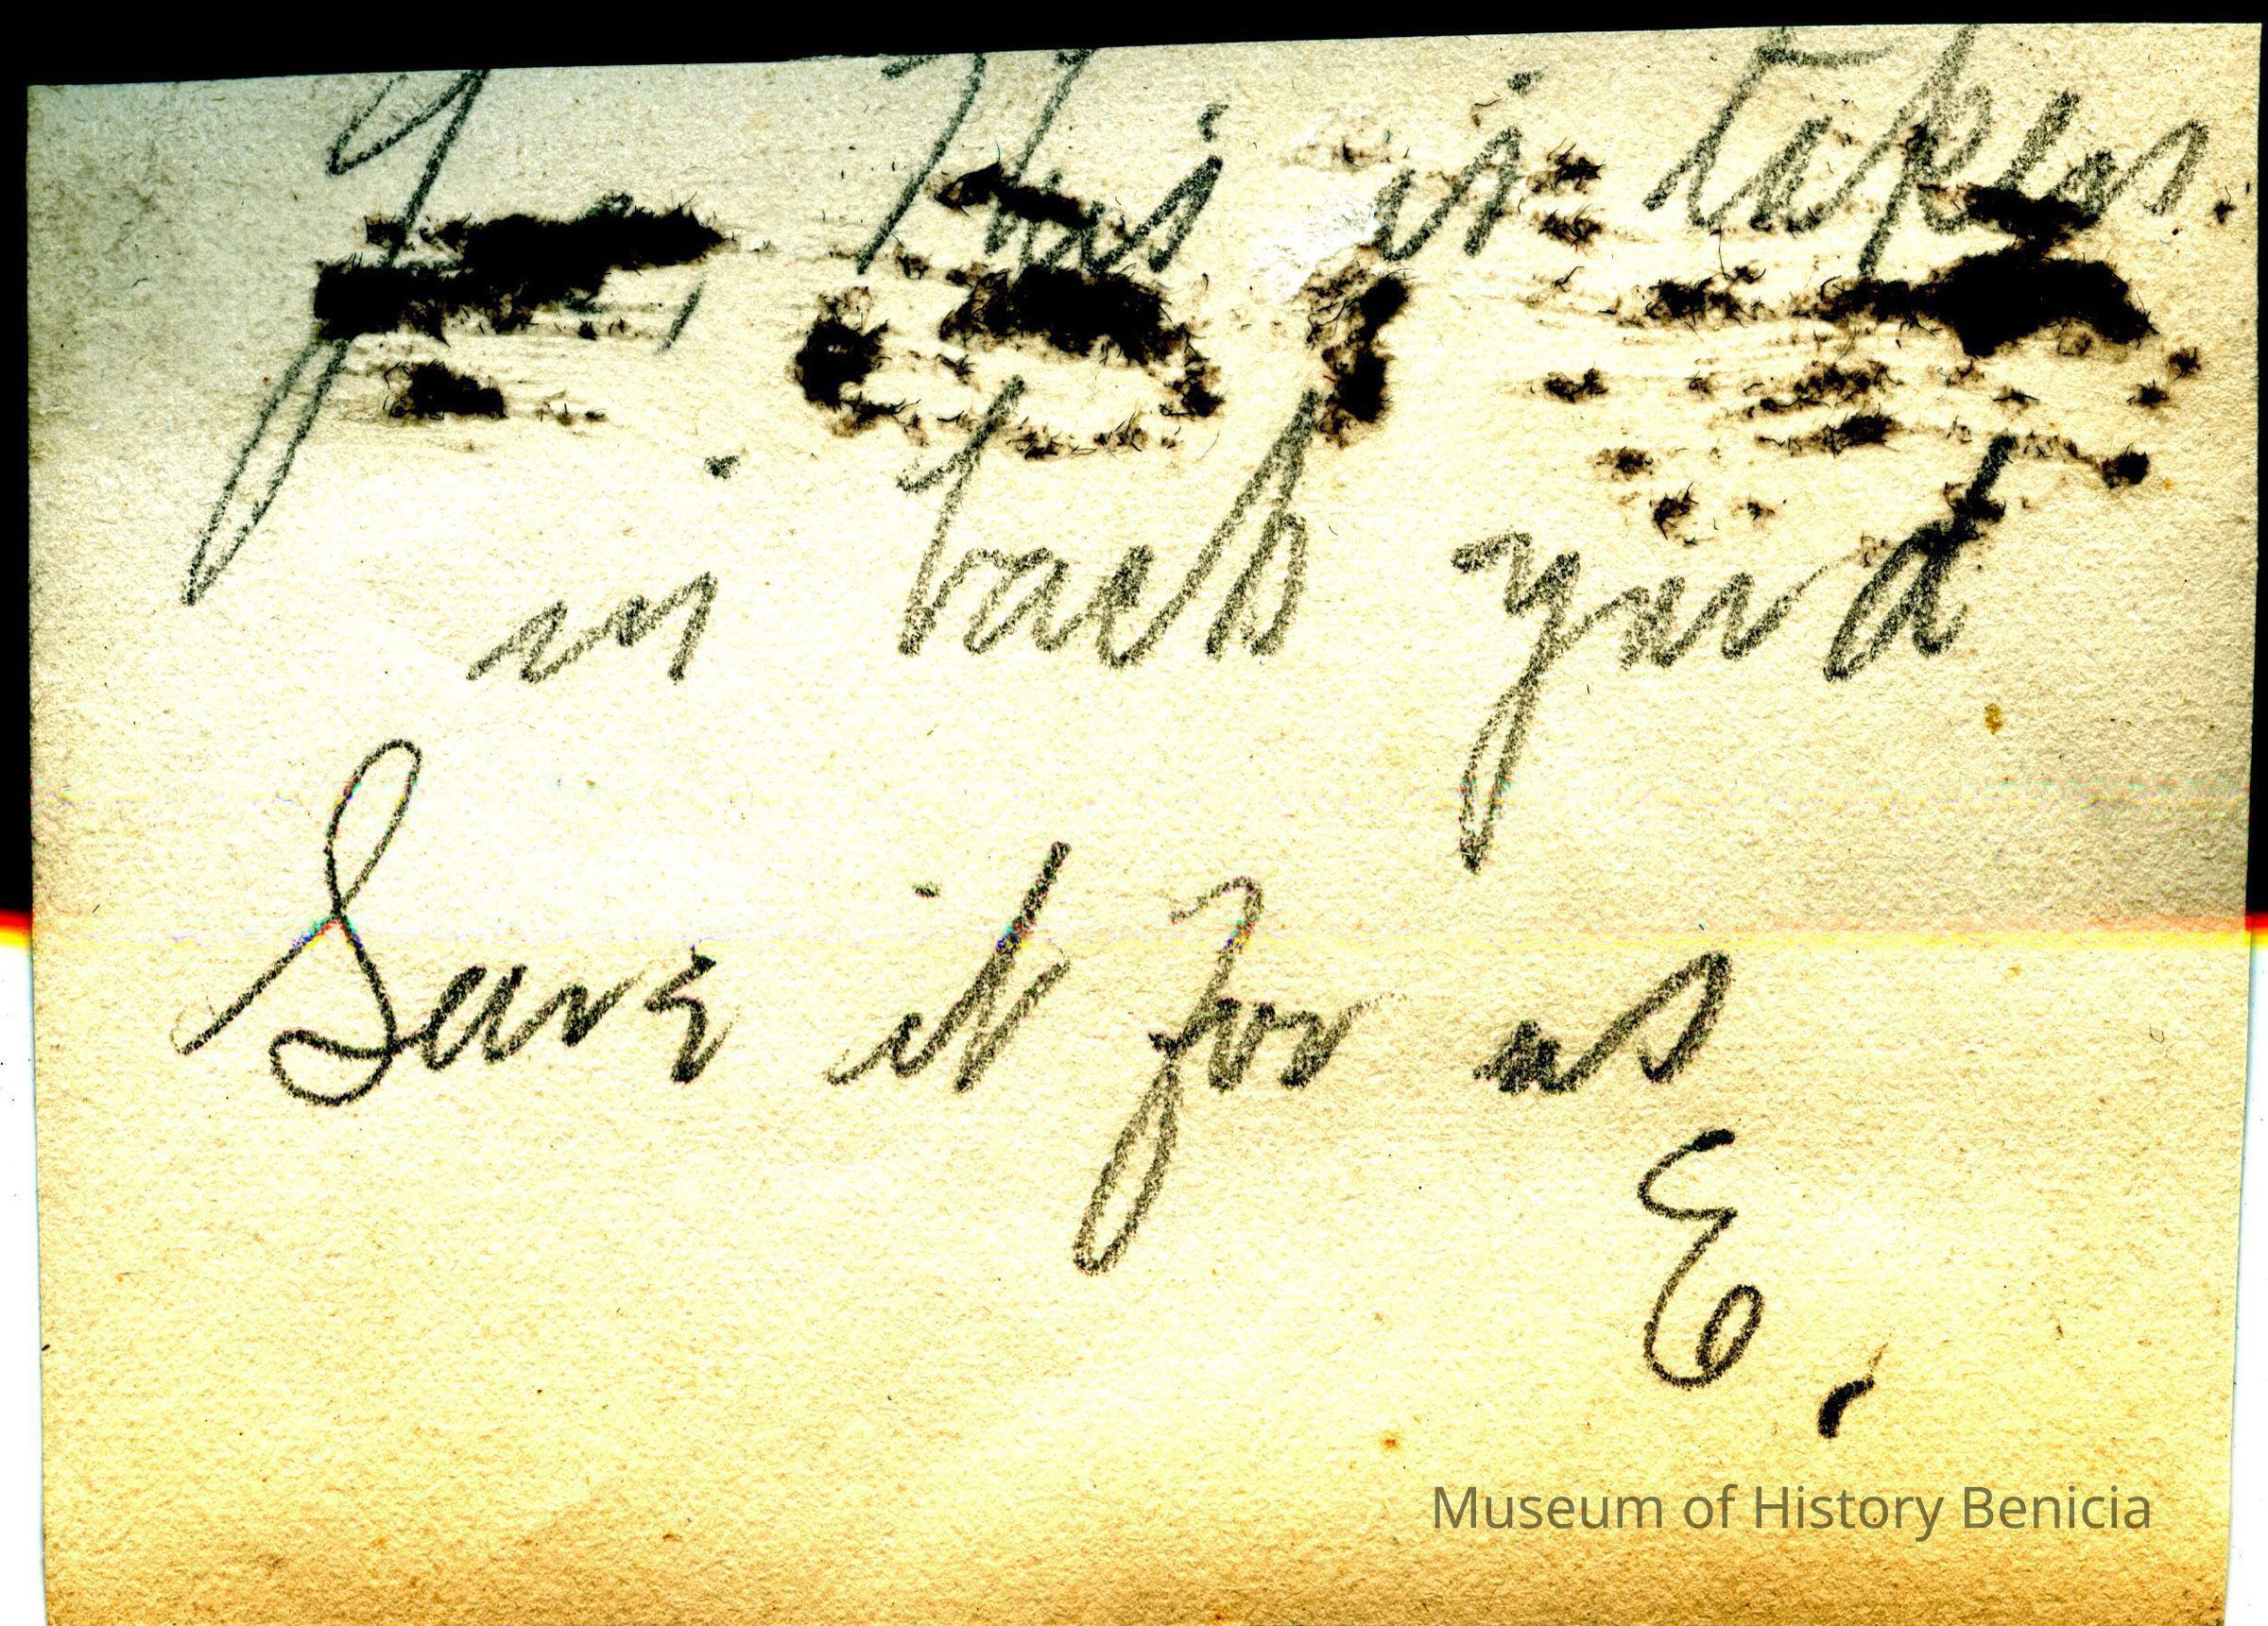 This is taken
in back yard
Save it for us
E.
Museum of History Benicia